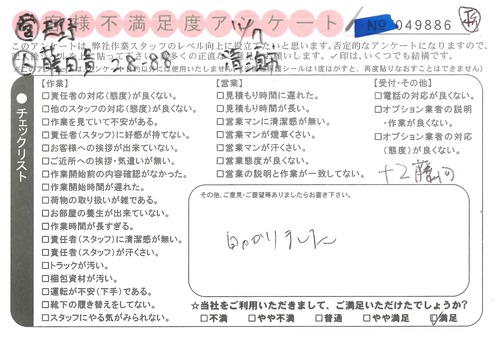 お客様不満足度アンケート
No 049886
このアンケートは、弊社作業スタッフのレベル向上に役立てたいと思います。否定的なアンケートになりますので、
✓印は、いくつでも結構です。
チェックリスト
【作業】
□責任者の対応(態度)が良くない。
□他のスタッフの対応(態度)が良くない。
□作業を見ていて不安がある。
□責任者(スタッフ)に好感が持てない。
□お客様への挨拶が出来ていない。
□ご近所への挨拶・気遣いが無い。
□作業開始前の内容確認がなかった。
□作業開始時間が遅れた。
□荷物の取り扱いが雑である。
□お部屋の養生が出来ていない。
□作業時間が長すぎる。
□責任者(スタッフ)に清潔感が無い。
□責任者(スタッフ)が汗くさい。
□トラックが汚い。
□梱包資材が汚い。
□運転が不安(下手)である。
□靴下の履き替えをしてない。
□スタッフにやる気がみられない。
【営業】
□見積もり時間に遅れた。
□見積もり時間が長い。
□営業マンに清潔感が無い。
□営業マンが煙草くさい。
□営業マンが汗くさい。
□営業態度が良くない。
□営業の説明と作業が一致してない。
【受付・その他】
□電話の対応が良くない。
□オプション業者の説明
・作業が良くない。
□オプション業者の対応
(態度)が良くない。
その他、ご意見・ご要望等ありましたらお書き下さい。
助かりました
☆当社をご利用いただきまして、ご満足いただけたでしょうか?
□不満 □やや不満 □普通 □やや満足 ☑満足